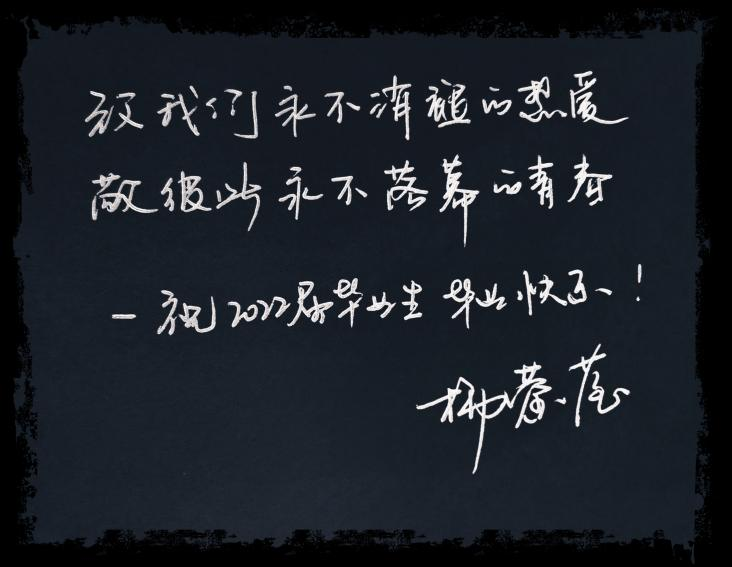 致我们永不消褪的热爱
敬彼此永不落幕的青春
－祝2022届毕业生 毕业快乐！
柳